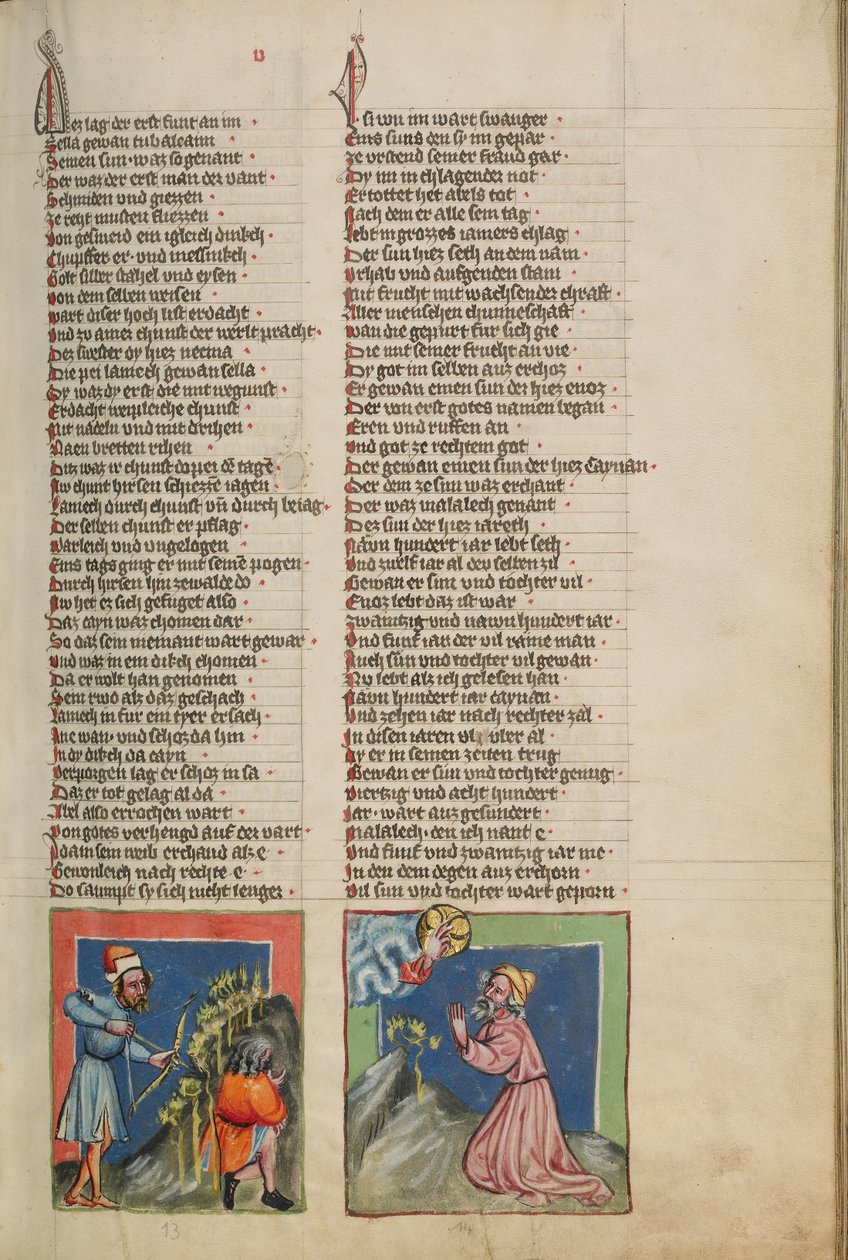 v
Dez lag der erst sunt an im
Sella gewan tubalcaim
Seinen sun · waz so genant
Der waz der erst man der vant
Schmiden vnd giezzen
ze reht musten fliezzen
Von gesmeid ein igleich dinkch
Chupffer er · vnd messinkch
Golt silber stahel vnd eysen
von dem selben weisen
wart diser hoch list erdacht
vnd zv ainer chunst der werlt pracht
Dez swester dy hiez neema
Die pei lamech gewan sella
Sy waz dy erst die mit wegunst
Erdacht weipleiche chunst
Mit nadeln vnd mit drihen
Naen bretten rihen
Ditz waz ir chunst do pei dē tagē
Nv chunt hirsen schiezzē iagen
Lamech durch chunst vn̄ durch beiag
Der selben chunst er pflag
Warleich vnd vngelogen
Eins tags ging er mit seinē pogen
Durch hirsen hin ze walde do
Nv het ez sich gefuget also
Daz cayn waz chomen dar
So daz sein niemant wart gewar
vnd waz in ein dikch chomen
Da er wolt han genomen
Sein rwo alz daz geschach
Lamech in fur ein tyer ersach
Ane wan · vnd schoz da hin
In dy dikch da cayn
verporgen lag er schoz in sa
Daz er tot gelag al da
Abel also errochen wart
Von gotes verhengd auf der vart
Adam sein weib erchand alz e
Gewonleich nach rechte e
Do saumpt sy sich nicht lenger
si von im wart swanger
Eins suns den sy im gepar
ze vrstend seiner fraud gar
Dy im in chlagender not
Ertottet het abels tot
Nach dem er alle sein tag
Lebt in grozzes iamers chlag
Der sun hiez seth an dem nam
vrhab vnd aufgenden stam
Mit frucht mit wachsender chrafft
Aller menschen chunneschafft
wan die gepurt fur sich gie
Die mit seiner frucht an vie
Dy got im selben auz erchoz
Er gewan einen sun der hiez enoz
Der von erst gotes namen began
Eren vnd ruffen an
vnd got ze rechtem got
Der gewan einen sun der hiez Caynan
Der dem ze sun waz erchant
Der waz malalech genant
Dez sun der hiez iareth
Nawn hundert iar lebt seth
Vnd zwelf iar al den selben zil
Gewan er sun vnd tochter vil
Enoz lebt daz ist war
zwaintzig vnd nawn hundert iar
Vnd funf iar der vil raine man
Auch sun vnd tochter vil gewan
Nv lebt alz ich gelesen han
Nawn hundert iar caynan
Vnd zehen iar nach rechter zal
In disen iaren vber al
dy er in seinen zeiten trug
Gewan er sun vnd tochter genug
viertzig vnd acht hundert
Iar · wart auz gesundert
Malalech · den ich nant e
vnd funf vnd zwaintzig iar me
In den dem degen auz erchorn
vil sun vnd tochter wart geporn
13
14